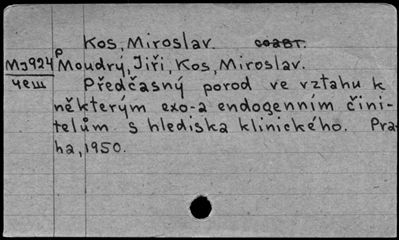 Kos, Miroslav. соавт.
р
Mз924 Moudrý, Jiří, Kos, Miroslav.
чеш Předčasný porod ve vztahu k
některým exo-a endogenním čini-
telům s hlediska klinického. Pra-
ha, 1950.